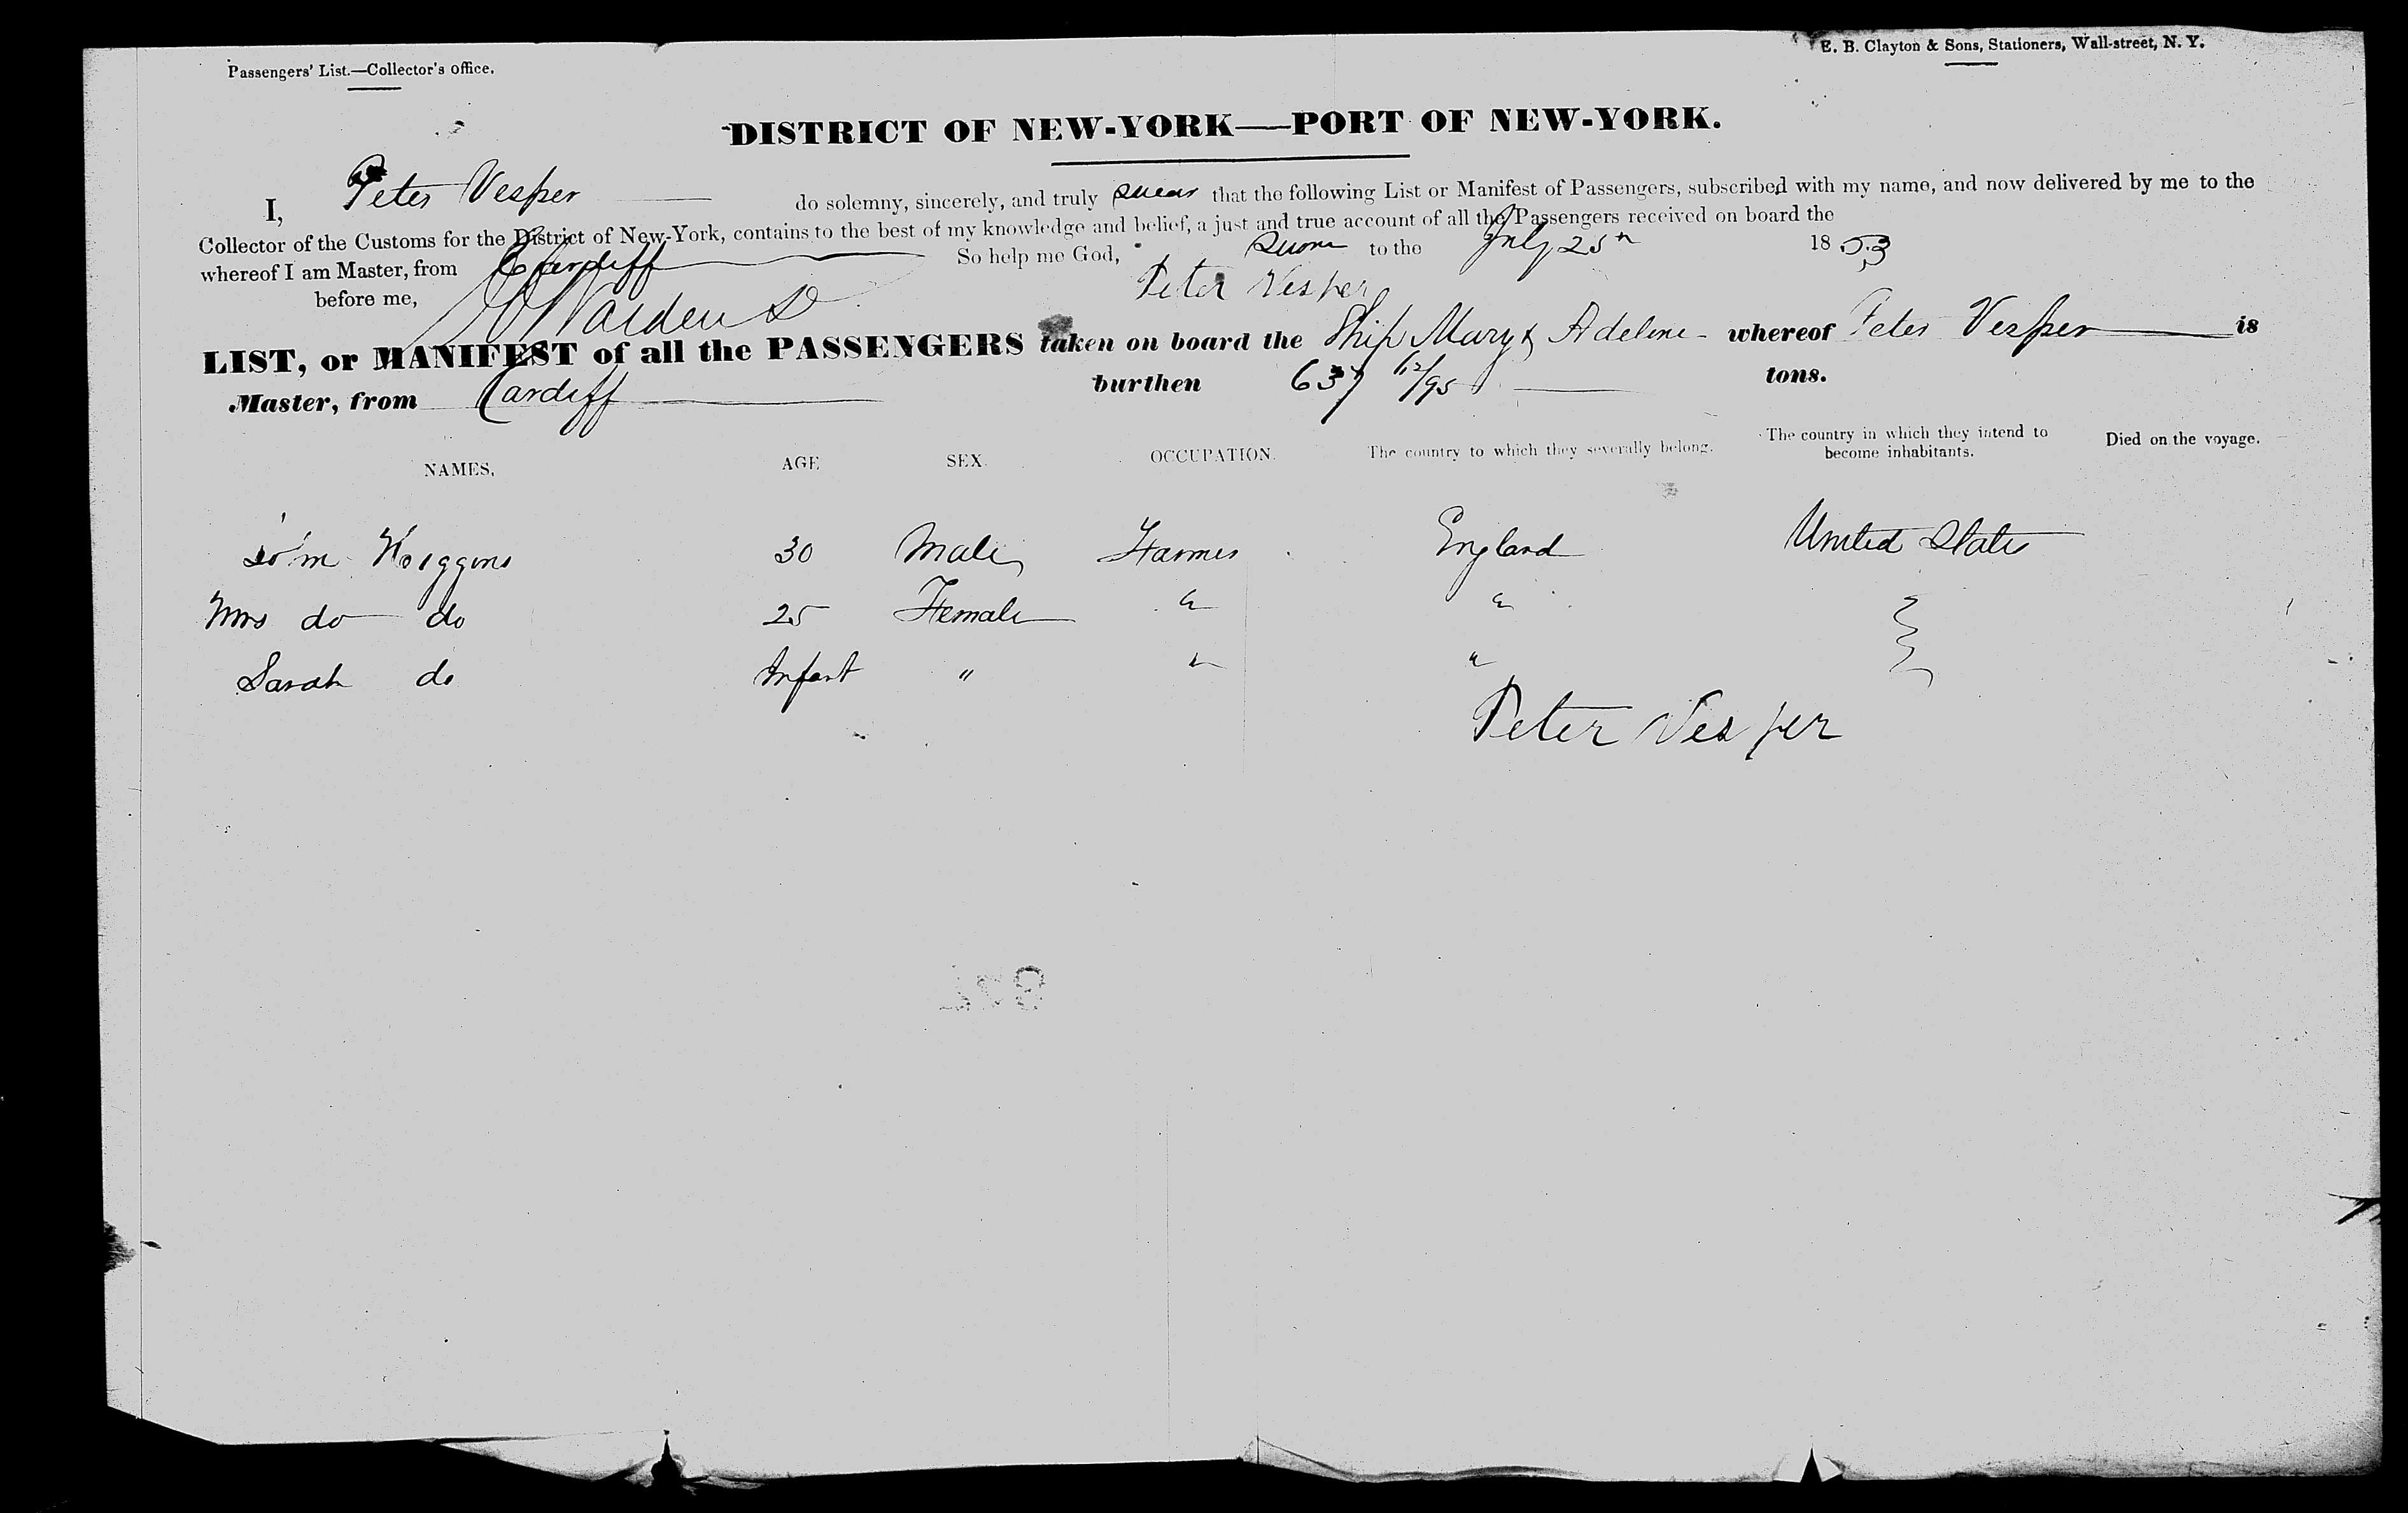 Passengers' List.—Collector's office.
E. B. Clayton & Sons, Stationers, Wall-street, N. Y.
DISTRICT OF NEW-YORK—PORT OF NEW-YORK.
I, Peter Vesper do solemny, sincerely, and truly swear that the following List or Manifest of Passengers, subscribed with my name, and now delivered by me to the
Collector of the Customs for the District of New-York, contains to the best of my knowledge and belief, a just and true account of all the Passengers received on board the
whereof I am Master, from Cardiff So help me God, Sworn to the July 25th 1853
before me, Peter Vesper
LIST, or MANIFEST of all the PASSENGERS taken on board the Ship Mary & Adeline whereof Peter Vesper is
Master, from Cardiff burthen 637 12/95 tons.
NAMES, AGE SEX. OCCUPATION. The country to which they severally belong. The country in which they intend to become inhabitants. Died on the voyage.
Wm Wiggins 30 Male Farmer England United States
Mrs do do 25 Female " "
Sarah do Infant " " "
Peter Vesper